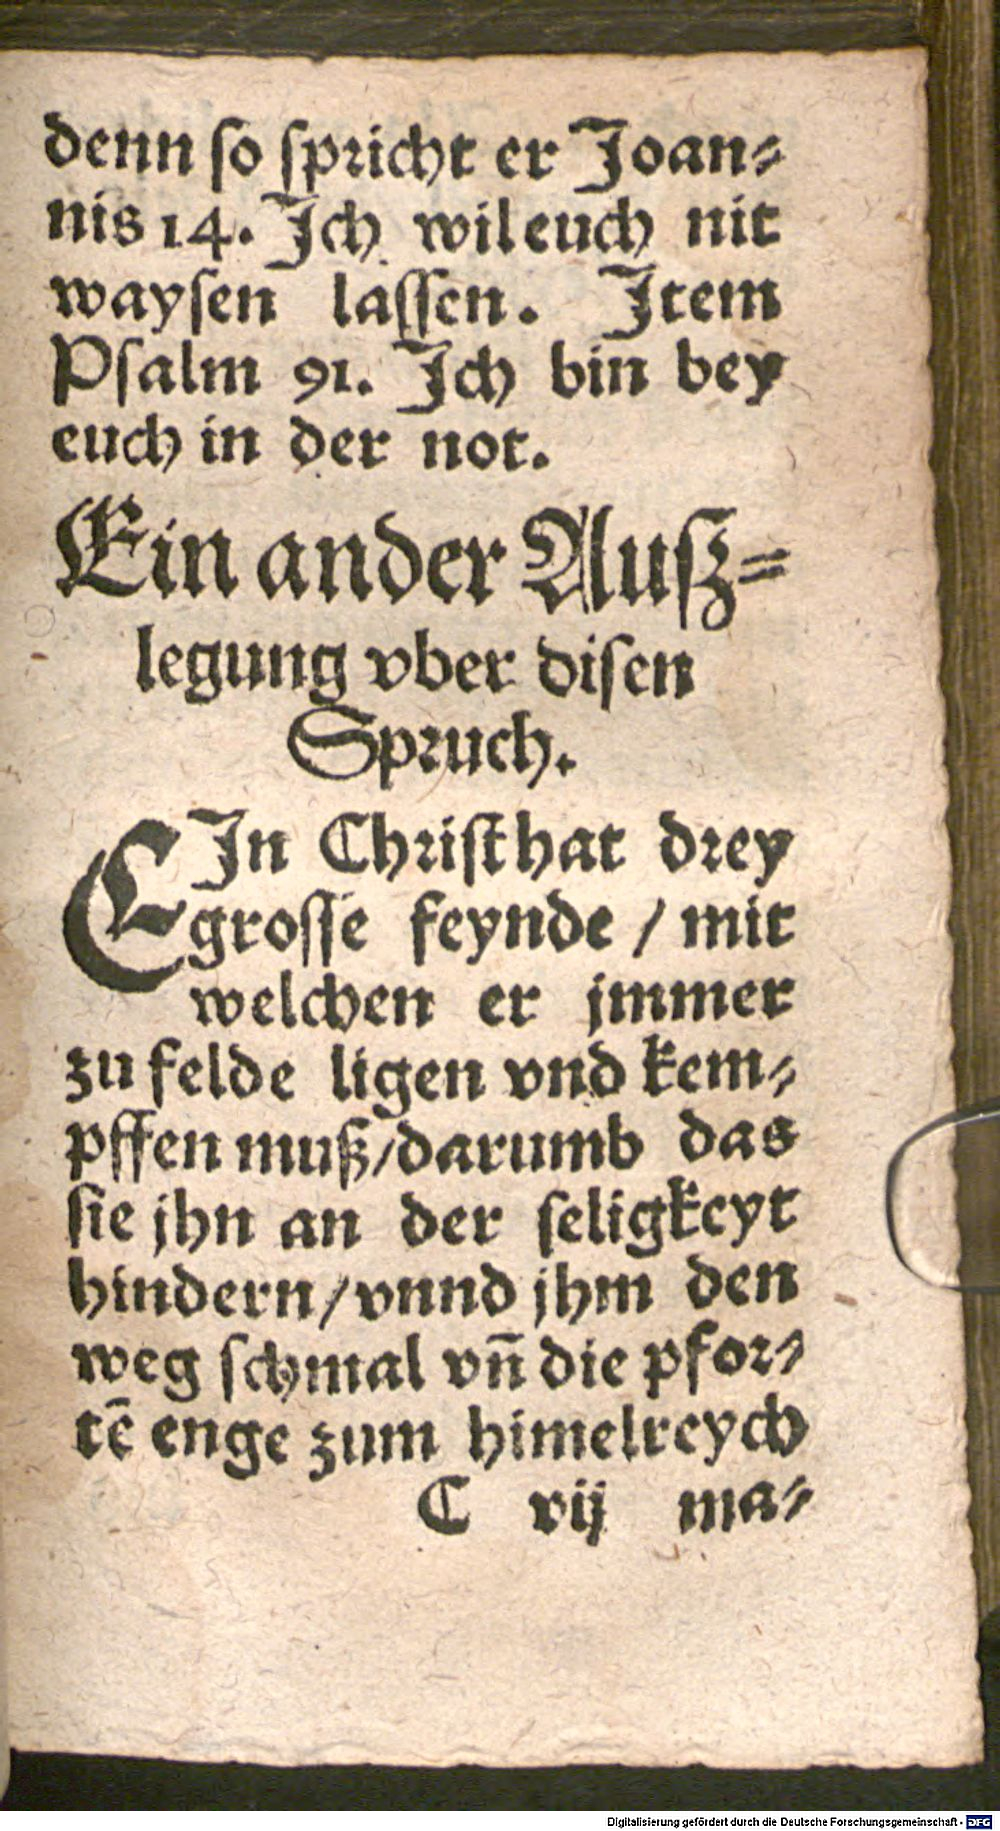 denn so spricht er Joan⸗
nis 14. Ich wil euch nit
waysen lassen. Item
Psalm 91. Ich bin bey
euch in der not.
Ein ander Außz⸗
legung vber disen
Spruch.
EIn Christ hat drey
grosse feynde / mit
welchen er jmmer
zu felde ligen vnd kem⸗
pffen muß / darumb das
sie jhn an der seligkeyt
hindern / vnnd jhm den
weg schmal vñ die pfor⸗
tē enge zum himelreych
C vij ma⸗
Digitalisierung gefördert durch die Deutsche Forschungsgemeinschaft - DFG